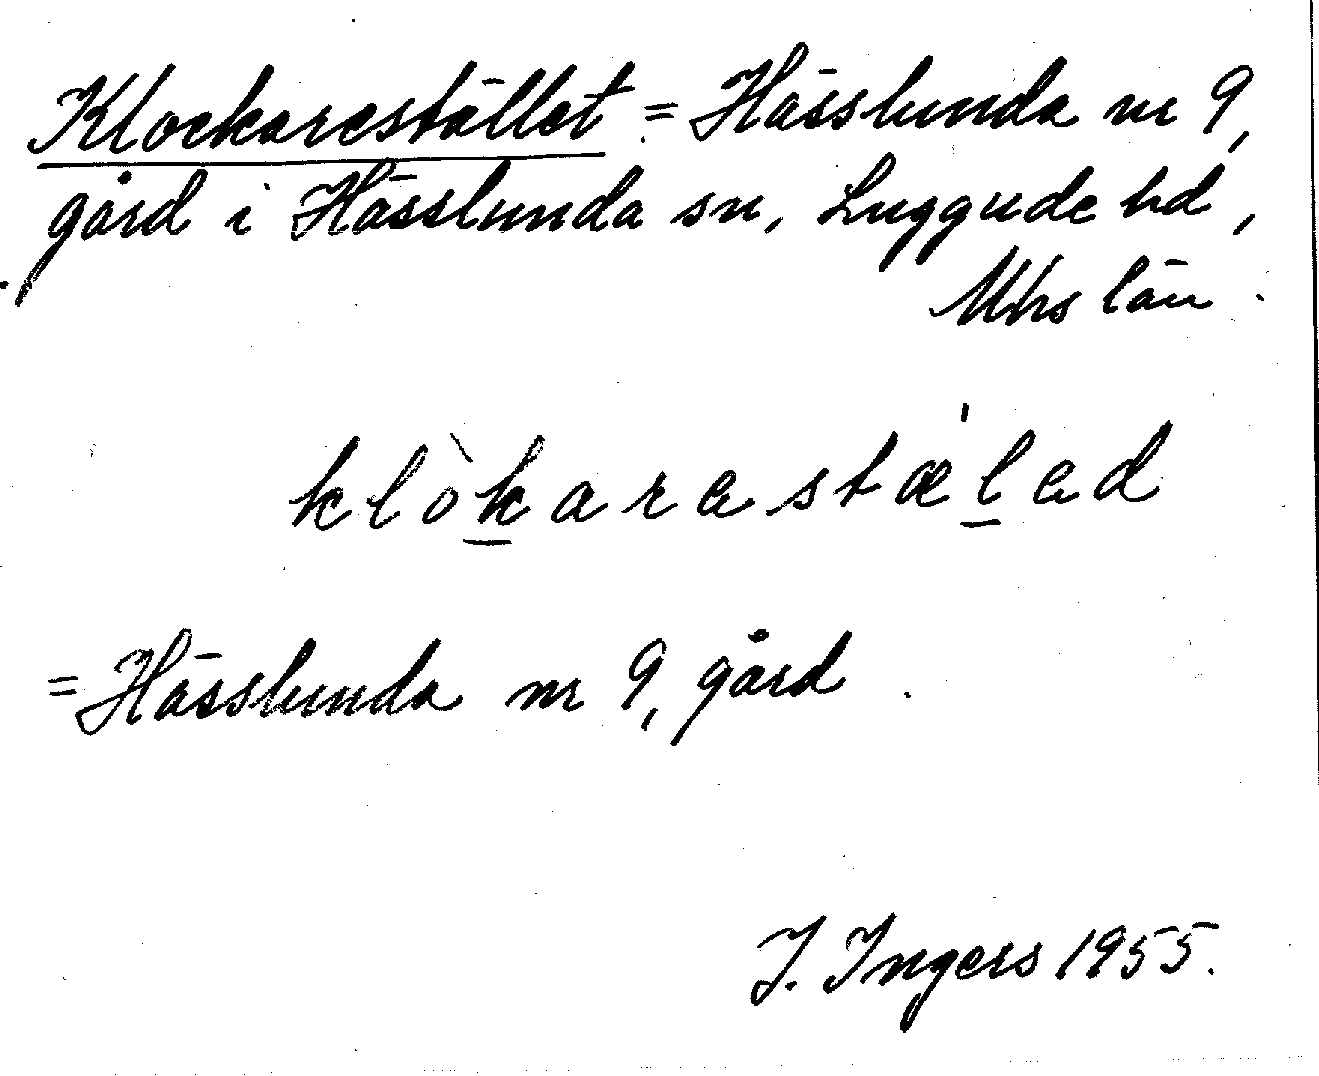 Klockarestället = Hässlunda nr 9,
gård i Hässlunda sn, Luggude hd,
Mhs län.
klòkarastæ'lad
= Hässlunda nr 9, gård.
I. Ingers 1955.